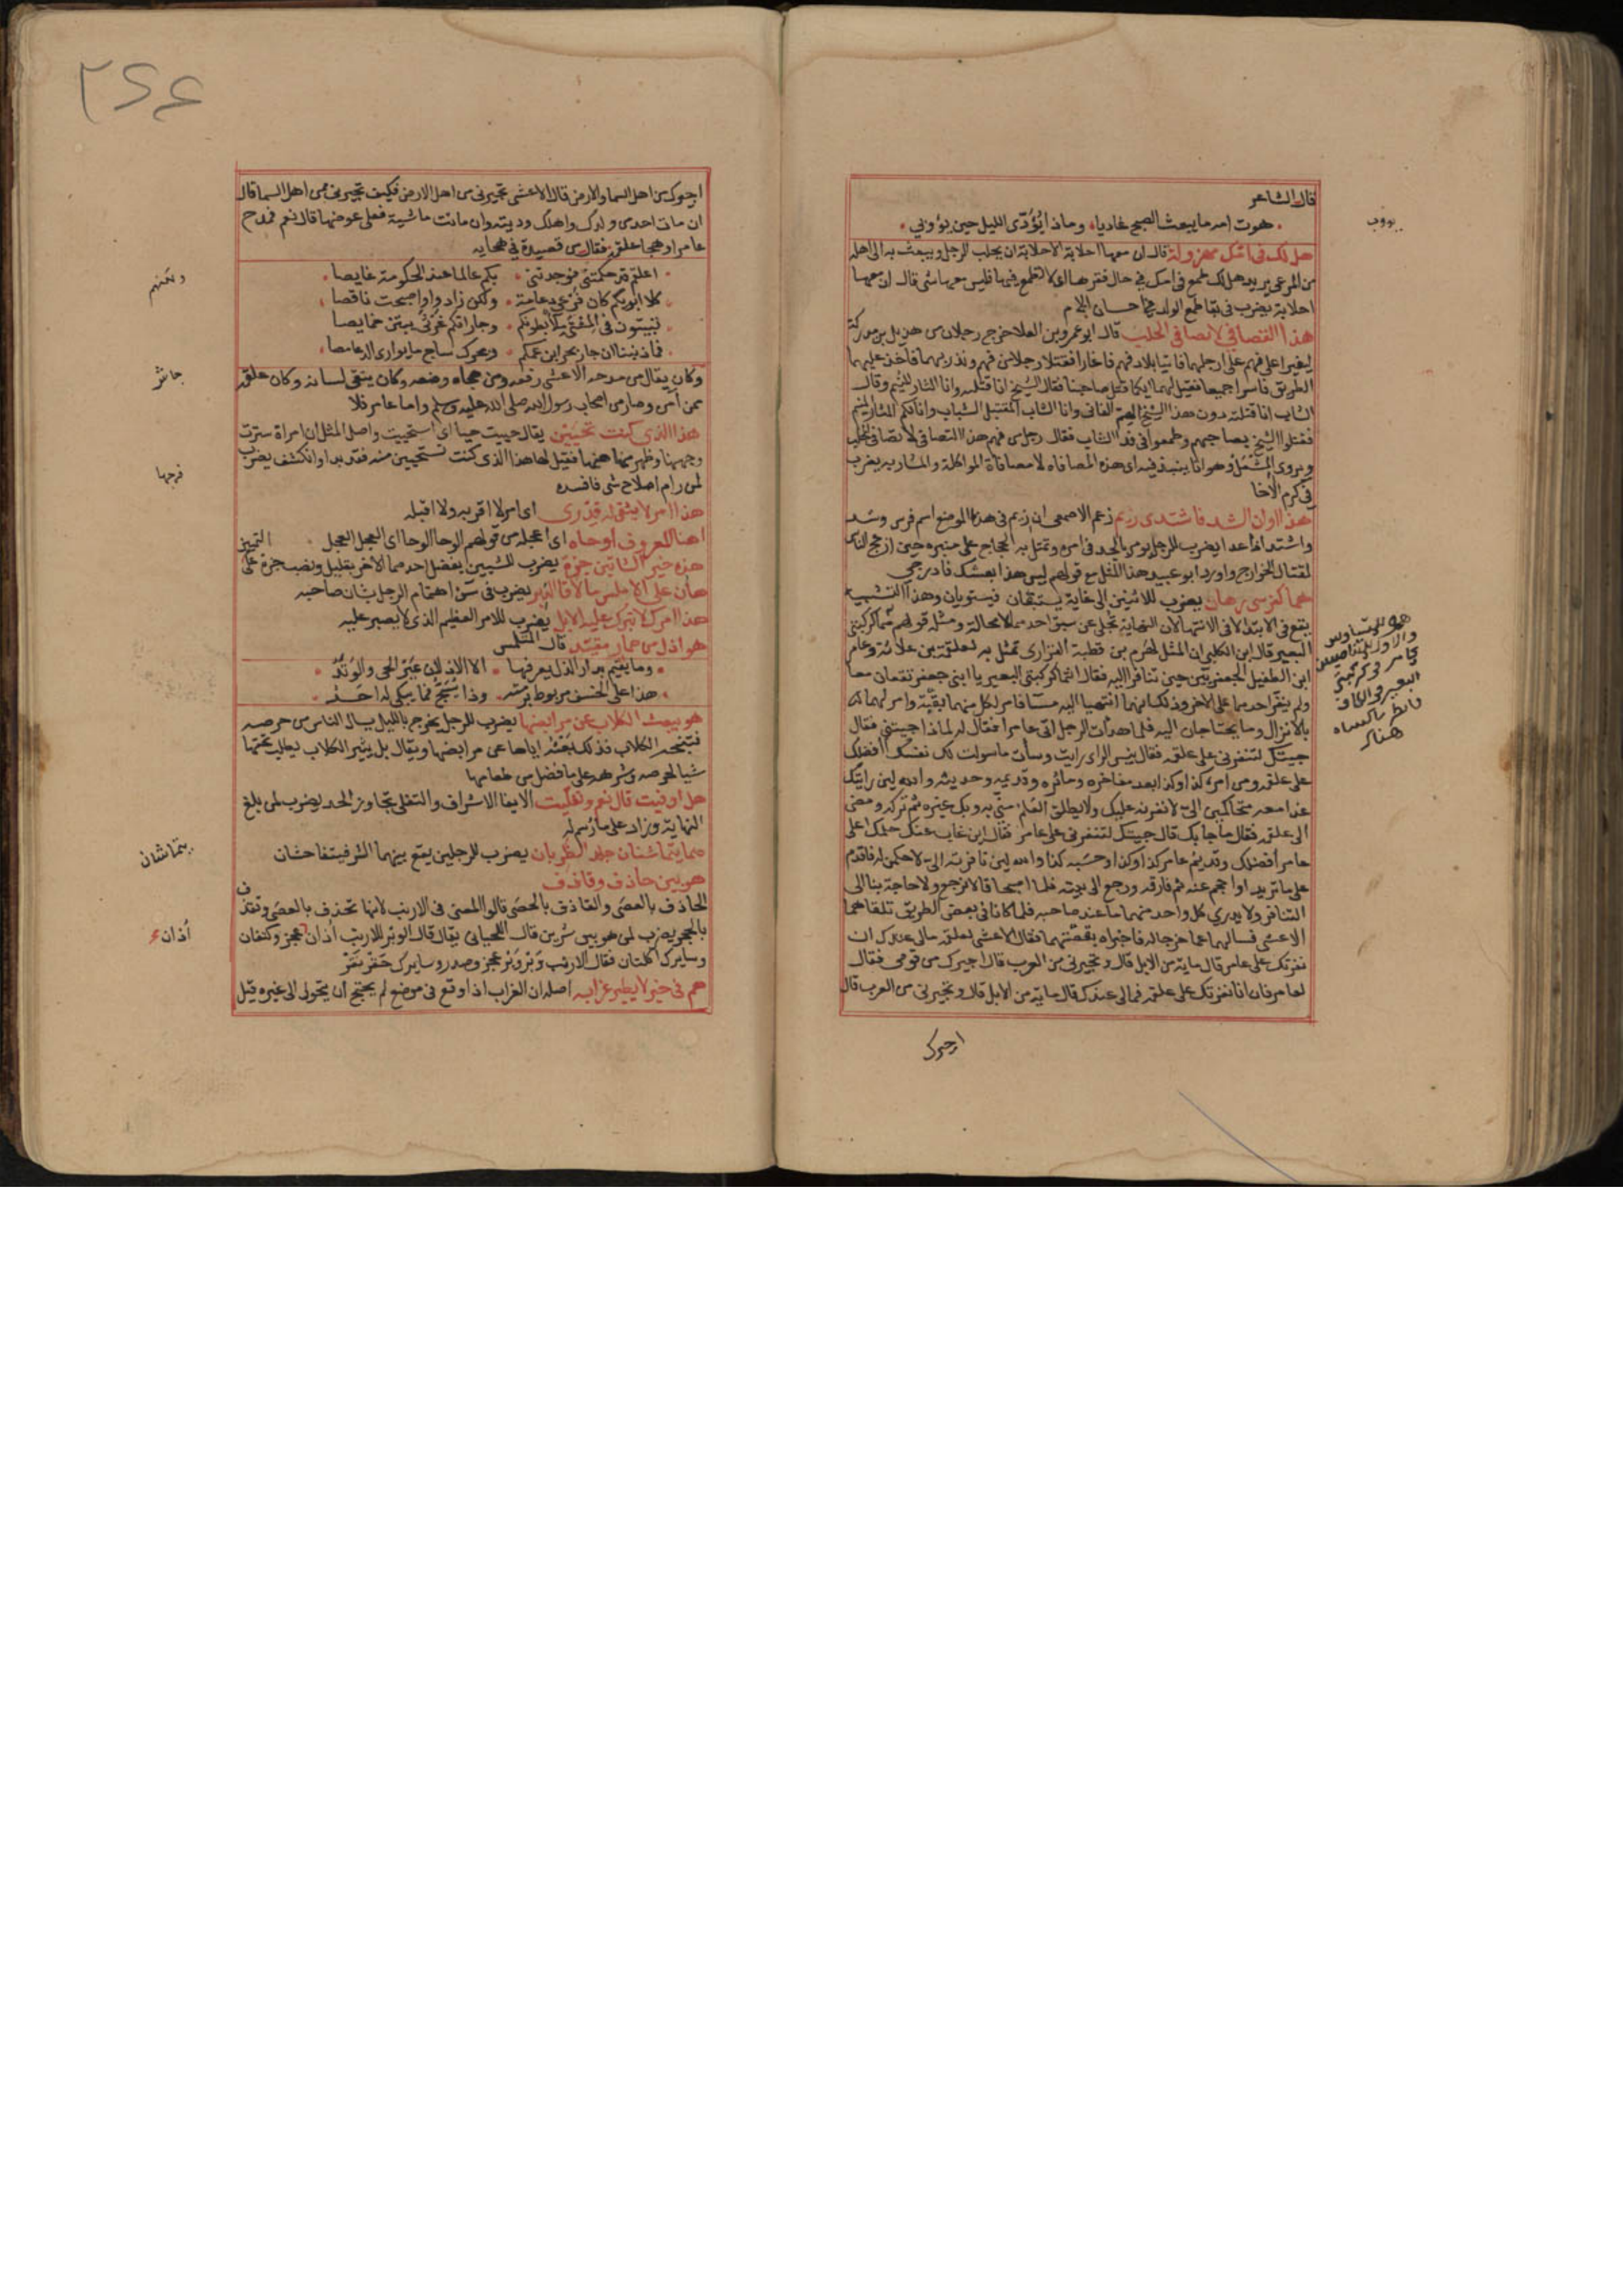 قال الشاعر
هوت امه ما يبعث الصبح غاديا وماذا يُؤدّى الليل حين يؤوب
هل لك فى امك مهزولة قال ان معها احلابة الاحلابة ان يحلب الرجل ويبعث به الى اهله
من المرعى يريد هل لك طمع فى امك فى حال فقرها اى لا تطمع فيها فليس معها شى قال ان معها
احلابة يضرب فى بقا طمع الولد فى احسان الام
هذا التصافى لا تصافى المحلب قال ابو عمرو بن العلا خرج رجلان من هذيل بن مدركة
ليغيرا على فهم على ارجلهما فاتيا بلاد فهم فاغارا فقتلا رجلا من فهم ونذر بهما فاخذ عليهما
الطريق فاسرا جميعا فقيل لهما ايكما قتل صاحبنا فقال الشيخ انا قتلته وانا الثار المنيم وقال
الشاب انا قتلته دون هذا الشيخ الهم الفانى وانا الشاب المقتبل الشباب وانا لكم الثار المنيم
فقتلوا الشيخ بصاحبهم وطمعوا فى فدا الشاب فقال رجل من فهم هذا التصافى لا تصافى المحلب
ويروى المشعل وهو انا ينبذ فيه اى هذه المصافاه لا مصافاة المواكلة والمشاربه يضرب
فى كرم الاخا
هذا اوان الشد فاشتدى زيم زعم الاصمعى ان زيم فى هذا الموضع اسم فرس وشد
واشتد اذا عدا يضرب للرجل يومر بالجد فى امره وتمثل به الحجاج على منبره حين ازعج الناس
لقتال الخوارج واورد ابو عبيد هذا المثل مع قولهم ليس هذا بعشك فادرجى
هما كفرسى رهان يضرب للاثنين الى غاية يستبقان فيستويان وهذا التشبيه
يقع فى الابتدا لا فى الانتها لان النهاية تجلى عن سبق احدهما لا محالة ومثله قولهم هما كركبتى
البعير قال ابن الكلبى ان المثل لهرم بن قطبة الفزارى تمثل به لعلقمة بن علاثة وعامر
ابن الطفيل الجعفريين حين تنافرا اليه فقال انتما كركبتى البعير يا ابنى جعفر تقعان معا
ولم ينفر احدهما على الاخر وذلك انهما انتهيا اليه مسا فامر لكل منهما بقبة وامر لهما
بالانزال وما يحتاجان اليه فلما هدات الرجل اتى عامرا فقال له لماذا جيتنى فقال
جيتك لتنفرنى على علقمه فقال بيس الراى رايت وسات ما سولت لك نفسك افضلك
على علقمه ومن امره كذا وكذا يعد مفاخره وماثره وقديمه وحديثه والله لين رايتك
غدا معه متحاكمين الى لانفرنه عليك ولا يطلق القلم منى به وبك غيره ثم تركه ومضى
الى علقمه فقال ما جا بك قال جيتك لتنفرنى على عامر فقال اين غاب عنك حلمك اعلى
عامر افضلك وقديم عامر كذا وكذا وحسبه كذا والله لين نافرته الى لاحكمن له فاقدم
على ما تريد او احجم عنه ثم فارقه ورجع الى بيته فلما اصبحا قالا نرجع ولا حاجة بنا الى
التنافر ولا يدري كل واحد منهما ما عند صاحبه فلما كانا فى بعض الطريق تلقاهما
الاعشى فسالهما عما خرجا له فاخبراه بقصتهما فقال الاعشى لعلقمه مالى عندك ان
نفرتك على عامر قال ماية من الابل قال وتجيرنى من العرب قال اجيرك من قومى فقال
لعامر فان انا نفرتك على علقمه فمالى عندك قال ماية من الابل قال وتجيرنى من العرب قال
اجيرك
يووب
البعير
هناك
اجيرك من اهل السما والارض قال الاعشى تجيرنى من اهل الارض فكيف تجيرنى من اهل السما قال
ان مات احد من ولدك واهلك وديته وان ماتت ماشية فعلى عوضها قال نعم فمدح
عامرا وهجا علقمة فقال من قصيدة فى هجايه
اعلقم قد حكمتنى فوجدتنى بكم عالما عند الحكومة غايصا
كلا ابويكم كان فرعى دعامة ولكن زادوا واصبحت ناقصا
تبيتون فى المشتى ملا بطونكم وجاراتكم غرثى يبتن خمايصا
فما ذنبنا ان جاش بحر ابن عمكم وبحرك ساج ما يوارى الدعامصا
وكان يقال من مدحه الاعشى رفعه ومن هجاه وضعه وكان يتقى لسانه وكان علقمه
ممن آمن وصار من اصحاب رسول الله صلى الله عليه وسلم واما عامر فلا
هذا الذى كنت تحيين يقال حييت حيا اى استحييت واصل المثل ان امراة سترت
وجهها وظهر منها هنها فقيل لها هذا الذى كنت تستحيين منه فقد بدا وانكشف يضرب
لمن رام اصلاح شى فافسده
هذا امر لا يثفى له قدرى اى امر لا اقربه ولا اقبله
اهنا المعروف أوحاه اى اعجله من قولهم الوحا الوحا اى العجل العجل
هذه خير الشاتين جزة يضرب للشيين يفضل احدهما الاخر بقليل ونصب جزة على التمييز
هان على الاملس ما لاقا الدبر يضرب فى سوٓ اهتمام الرجل بشان صاحبه
هذا امر لا تبرك عليه الابل يضرب للامر العظيم الذى لا يصبر عليه
هو اذل من حمار مقيد قال المتلمس
وما يقيم بدار الذل يعرفها الا الاذلان عير الحى والوتد
هذا على الخسف مربوط برمته وذا يشج فما يبكى له احد
هو يبعث الكلاب عن مرابضها يضرب للرجل يخرج بالليل يسال الناس من حرصه
فتنبحه الكلاب فذلك بعثه اياها عن مرابضها ويقال بل يثير الكلاب يطلب تحتها
شيا لحرصه وشرهه على ما فضل من طعامها
هل اوفيت قال نعم وتعليت الايفا الاشراف والتفلى تجاوز الحد يضرب لمن بلغ
النهاية وزاد على ما رسم له
هما يتماشنان جلد الظربان يضرب للرجلين يقع بينهما الشر فيتفاحشان
هو بين حاذف وقاذف
الحاذف بالعصى والقاذف بالحصى قالوا المعنى فى الارنب لانها تحذف بالعصى وتقذف
بالحجر يضرب لمن هو بين شرين قال اللحيانى يقال قال الوبر للارنب أذان عجز وكتفان
وسايرك اكلتان فقال الارنب وبر وبر عجز وصدر وسايرك حقر نقر
هم فى خير لا يطير غرابه اصله ان الغراب اذا وقع فى موضع لم يحتج ان يتحول الى غيره قيل
جاش
فرجها
يتماشنان
أذان